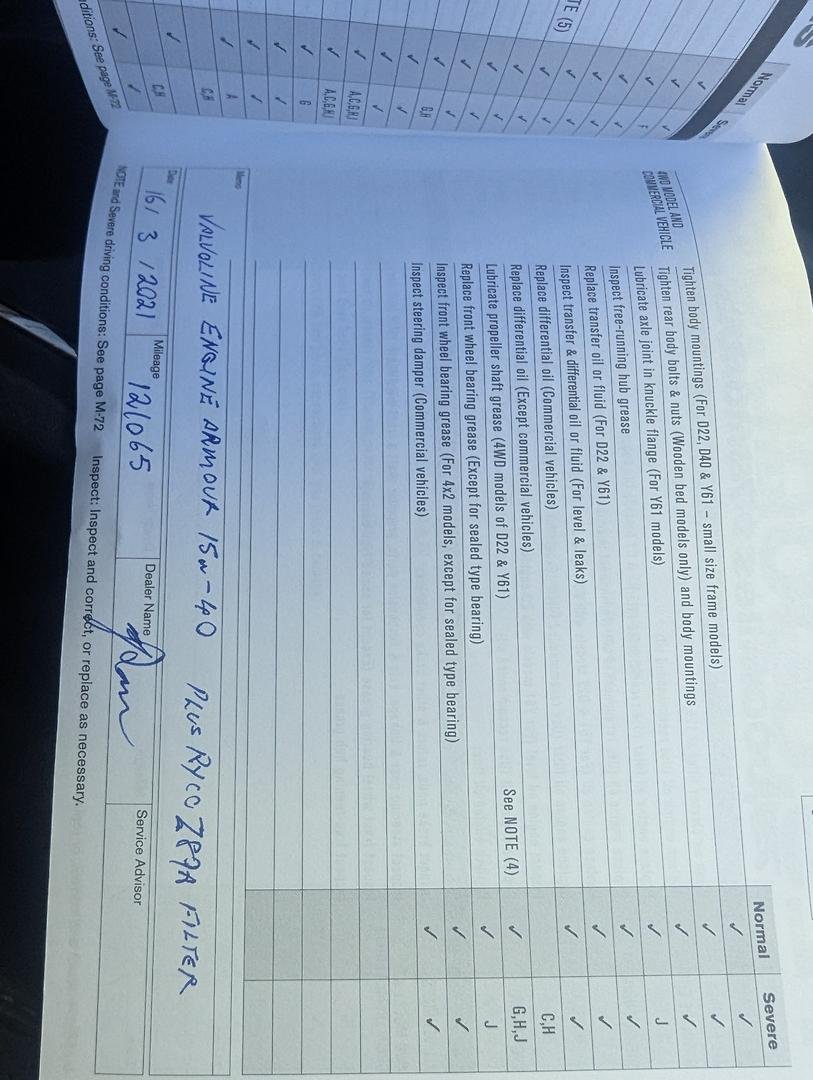 Normal
Severe
4WD MODEL AND
COMMERCIAL VEHICLE
Tighten body mountings (For D22, D40 & Y61 – small size frame models) ✓ ✓
Tighten rear body bolts & nuts (Wooden bed models only) and body mountings ✓ ✓
Lubricate axle joint in knuckle flange (For Y61 models) ✓ ✓
Inspect free-running hub grease ✓ J
Replace transfer oil or fluid (For D22 & Y61) ✓ ✓
Inspect transfer & differential oil or fluid (For level & leaks) ✓ ✓
Replace differential oil (Commercial vehicles) ✓ ✓
Replace differential oil (Except commercial vehicles) C,H
Lubricate propeller shaft grease (4WD models of D22 & Y61) See NOTE (4) ✓ G,H,J
Replace front wheel bearing grease (Except for sealed type bearing) ✓ J
Inspect front wheel bearing grease (For 4x2 models, except for sealed type bearing) ✓ ✓
Inspect steering damper (Commercial vehicles) ✓ ✓
Memo
VALVOLINE ENGINE ARMOUR 15W-40 PLUS RYCO Z89A FILTER
Date
16/3/2021
Mileage
121065
Dealer Name
Service Advisor
NOTE and Severe driving conditions: See page M-72 Inspect: Inspect and correct, or replace as necessary.